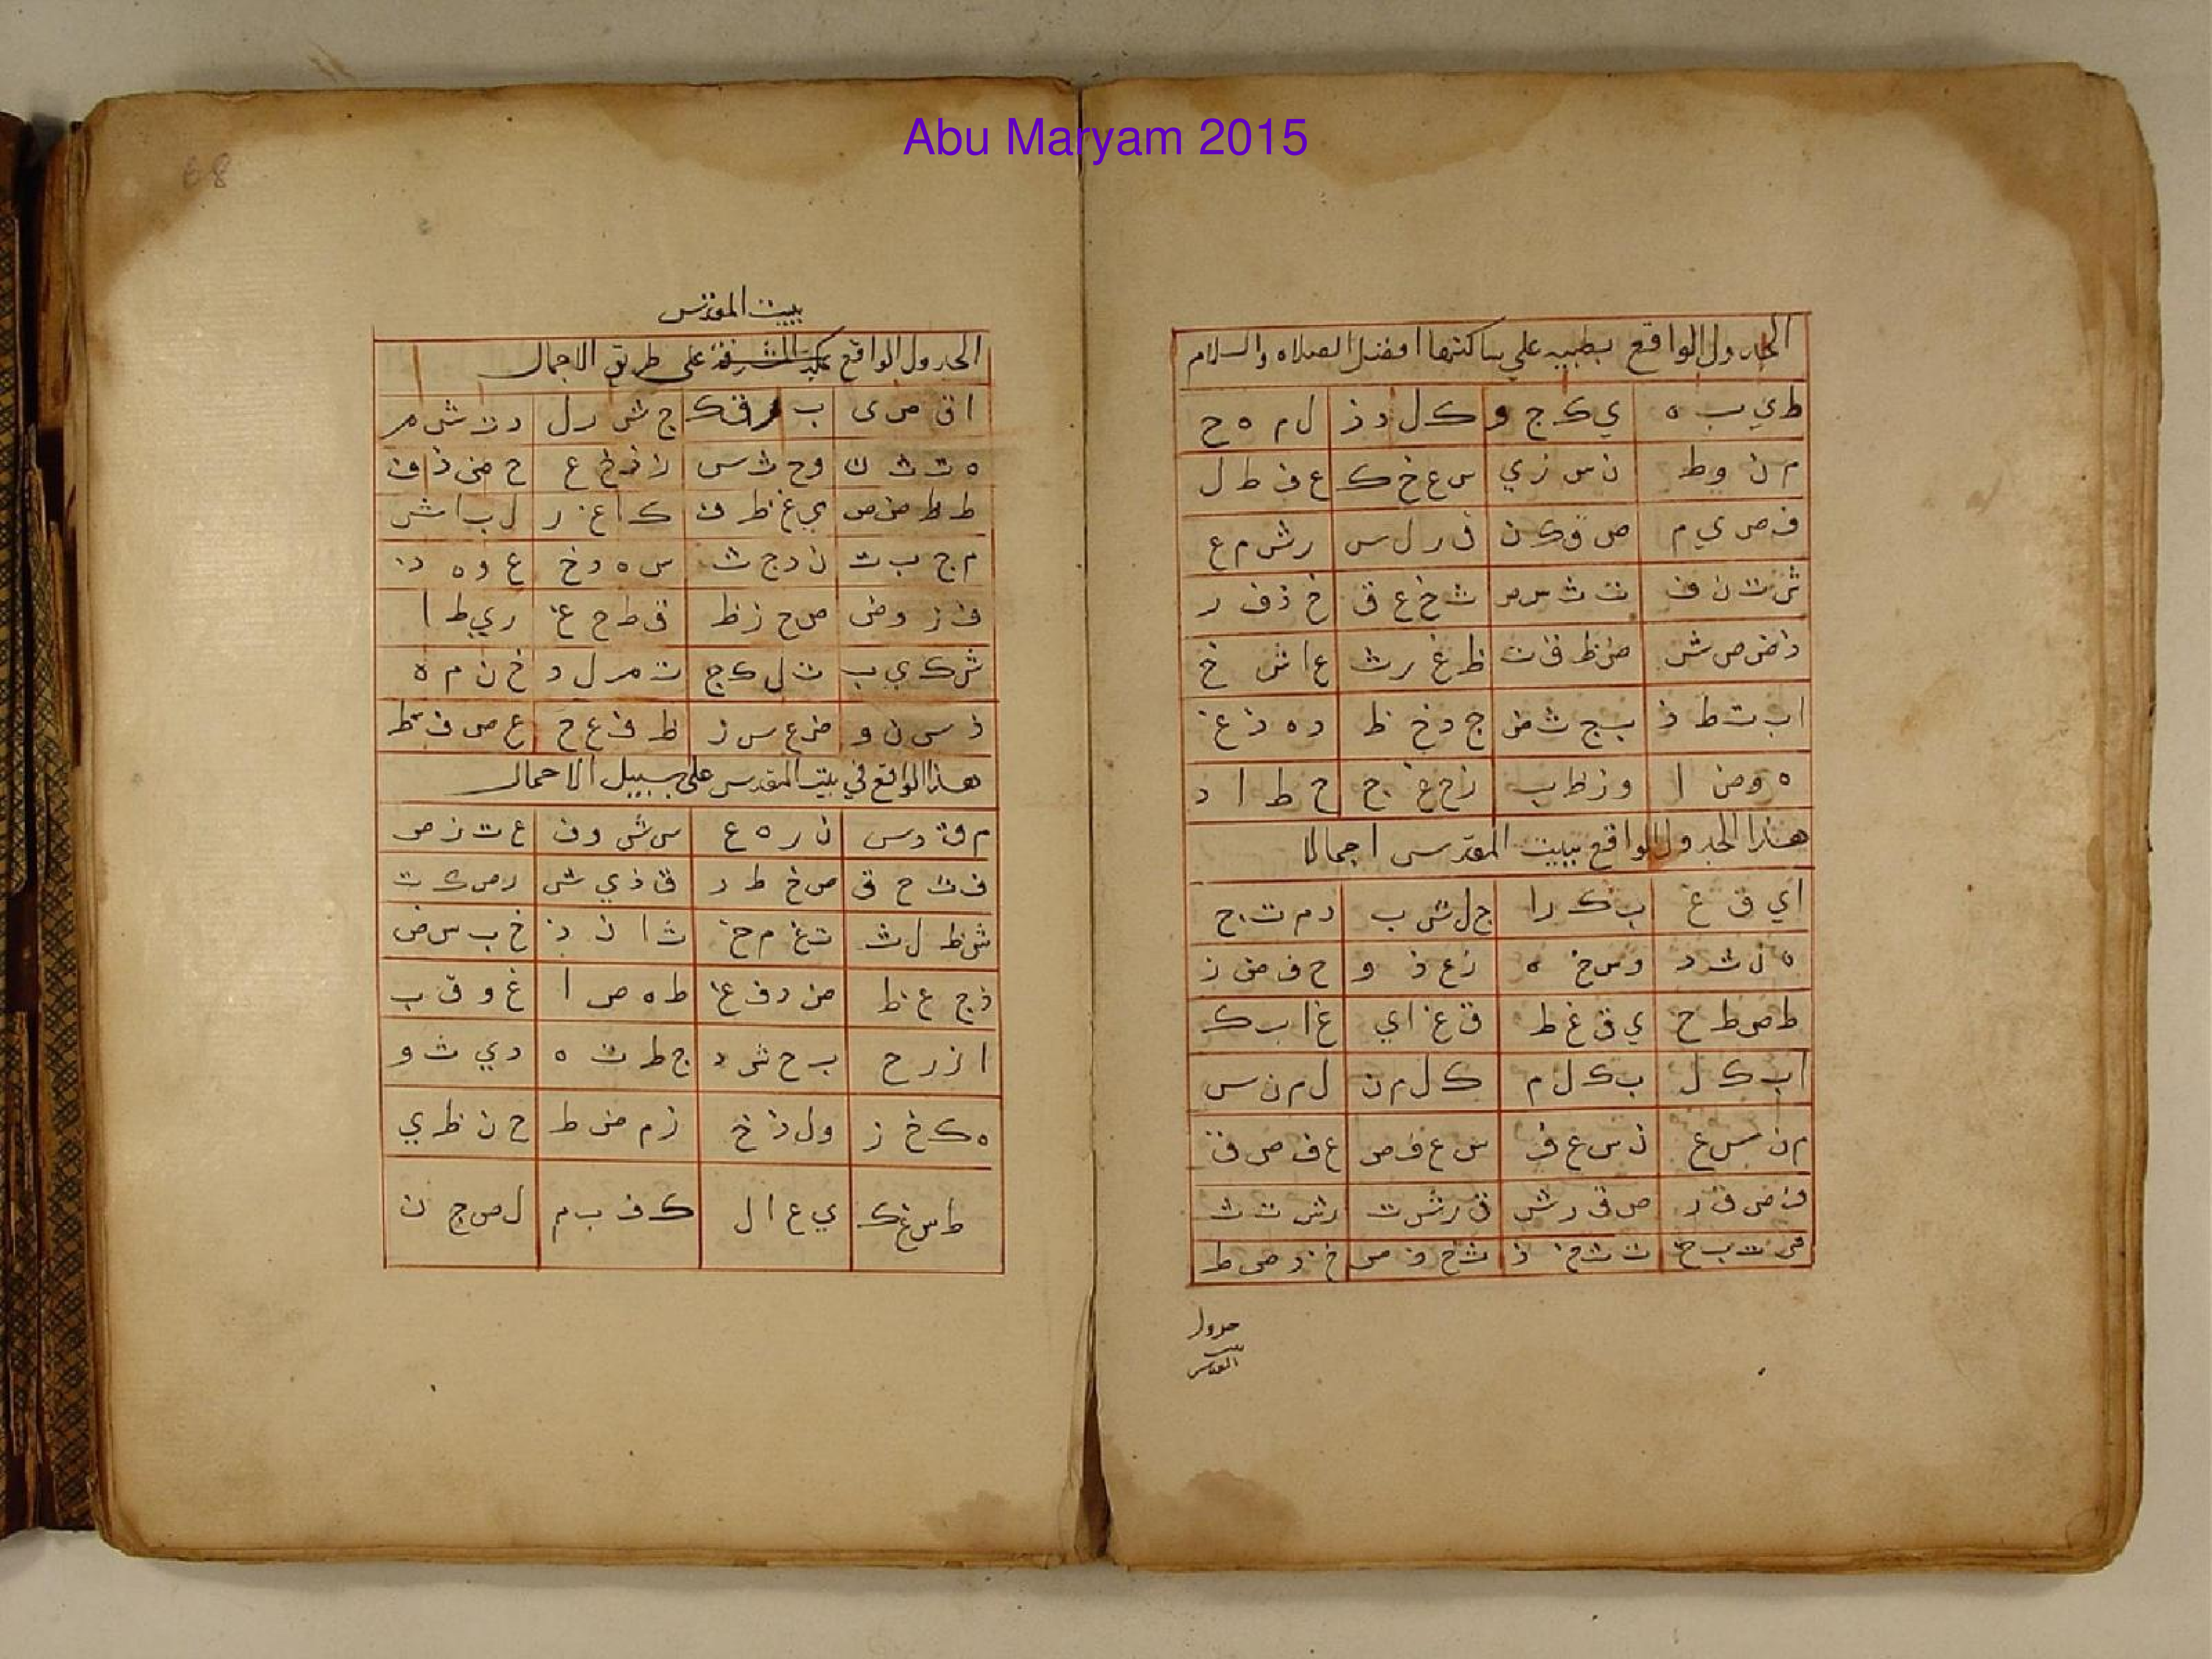 Abu Maryam 2015
68
الجدول الواقع بطيبه علي ساكنها افضل الصلاه والسلام
ط ي ب ه ي ك ج و ك ل د ذ ل م ه ح
م ن و ط ن س ز ي س ع خ ك ع ف ط ل
ف ص ي م ص ق ك ن ق ر ل س ر ش م ع
ش ت ن ف ت ث س ص ث خ ع ق خ ذ ف ر
ذ ض ص ش ض ظ ق ت ظ غ ر ث غ ا ش خ
ا ب ت ط ذ ب ج ث ض ج د خ ظ د ه ذ غ
ه و ض ا و ز ظ ب ز ح غ ج ح ط ا د
هذا الجدول الواقع ببيت المقدس اجمالا
ا ي ق غ ب ك ر ا ج ل ش ب د م ت ج
ه ن ث د و س خ ه ز ع ذ و ح ف ض ز
ط ص ظ ح ي ق غ ط ق غ ا ي غ ا ب ك
ا ب ك ل ب ك ل م ك ل م ن ل م ن س
م ن س ع ن س ع ف س ع ف ص ع ف ص ق
ف ص ق ر ص ق ر ش ق ر ش ت ر ش ت ث
جدول
بيت
المقدس
بيت المقدس
الجدول الواقع بمكة المشرفة على طريق الاجمال
ا ق ص ى ب ر ق ك ج ش ر ل د ت ش م
ه ث ت ن و خ ث س ز ذ خ ع ح ض ذ ف
ط ظ ض ص ي غ ظ ق ك ا غ ر ل ب ا ش
م ج ب ت ن د ج ث س ه د خ ع و ه ذ
ف ز و ض ص ح ز ظ ق ط ح غ ر ي ط ا
ش ك ي ب ت ل ك ج ث م ل د خ ن م ه
ذ س ن و ض ع س ز ظ ف ع ح غ ص ف ط
هذا الواقع في بيت المقدس على سبيل الاجمال
م ق د س ن ر ه ع س ش و ف ع ت ز ص
ف ث ح ق ص خ ط ر ق ذ ي ش ر ض ك ت
ش ظ ل ث ت غ م خ ث ا ن ذ خ ب س ض
ذ ج ع ظ ض د ف غ ظ ه ص ا غ و ق ب
ا ز ر ح ب ح ش د ج ط ت ه د ي ث و
ه ك خ ز و ل ذ خ ز م ض ط ح ن ظ ي
ط س غ ك ي ع ا ل ك ف ب م ل ص ج ن